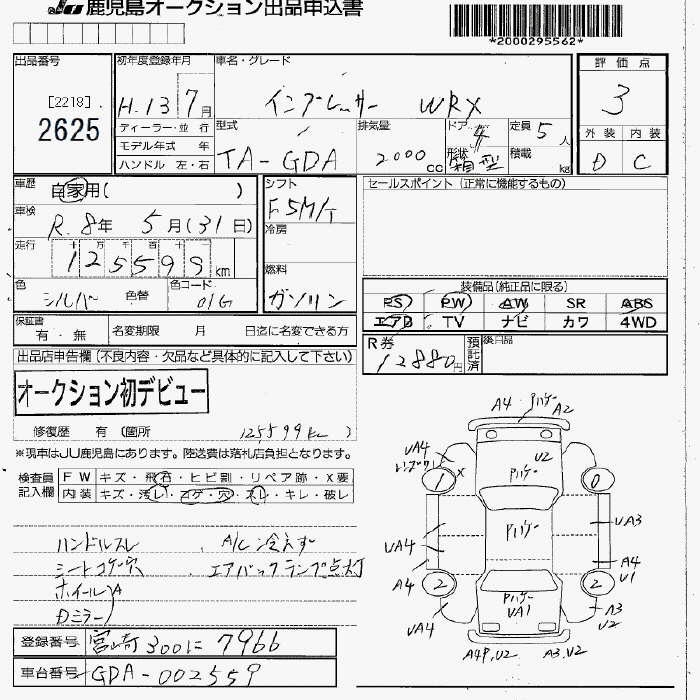 JU 鹿児島オークション出品申込書
*2000295562*
出品番号
[2218]
2625
初年度登録年月
H.13 7月
ディーラー・並 行
モデル年式 年
ハンドル 左・右
車名・グレード
インプレッサー WRX
型式
TA-GDA
排気量
2000cc
ドア 4
形状 箱型
定員 5人
積載 kg
評価点
3
外装 内装
D C
車歴 自家用( )
車検 R.8年 5月(31日)
走行 十 万 千 百 十 一
125599km
色 シルバー 色替
色コード 01G
シフト
F5M/T
冷房
燃料
ガソリン
セールスポイント (正常に機能するもの)
装備品(純正品に限る)
PS PW AW SR ABS
エアB TV ナビ カワ 4WD
保証書 有・無
名変期限 月 日迄に名変できる方
R券 12880円
預託済
後日品
出品店申告欄(不良内容・欠品など具体的に記入して下さい)
オークション初デビュー
修復歴 有 (箇所 125599km )
※現車はJU鹿児島にあります。陸送費は落札店負担となります。
検査員記入欄
FW キズ・飛石・ヒビ割・リペア跡・X要
内装 キズ・汚レ・コゲ・穴・スレ・キレ・破レ
ハンドルスレ A/C冷えず
シートコゲ穴 エアバックランプ点灯
ホイールA
Dミラー
登録番号 宮崎300に7966
車台番号 GDA-002559
A4 ハゲー A2
UA4
U2
ハゲー
1 X
0
ハゲー
UA3
UA4
A4
U1
A4
2
2
ハゲー
UA1
UA4
A3
U2
A4P,U2
A3,U2